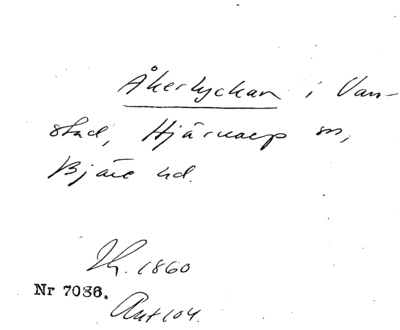 Åkerlyckan i Van-
stad, Hjärnarp sn,
Bjäre hd.
Th. 1860
Nr 7086.
Ant 104.